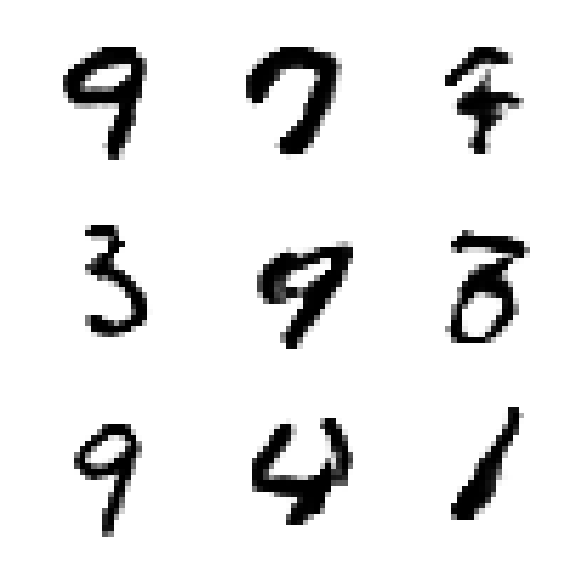 9 7 7
3 9 3
9 4 1